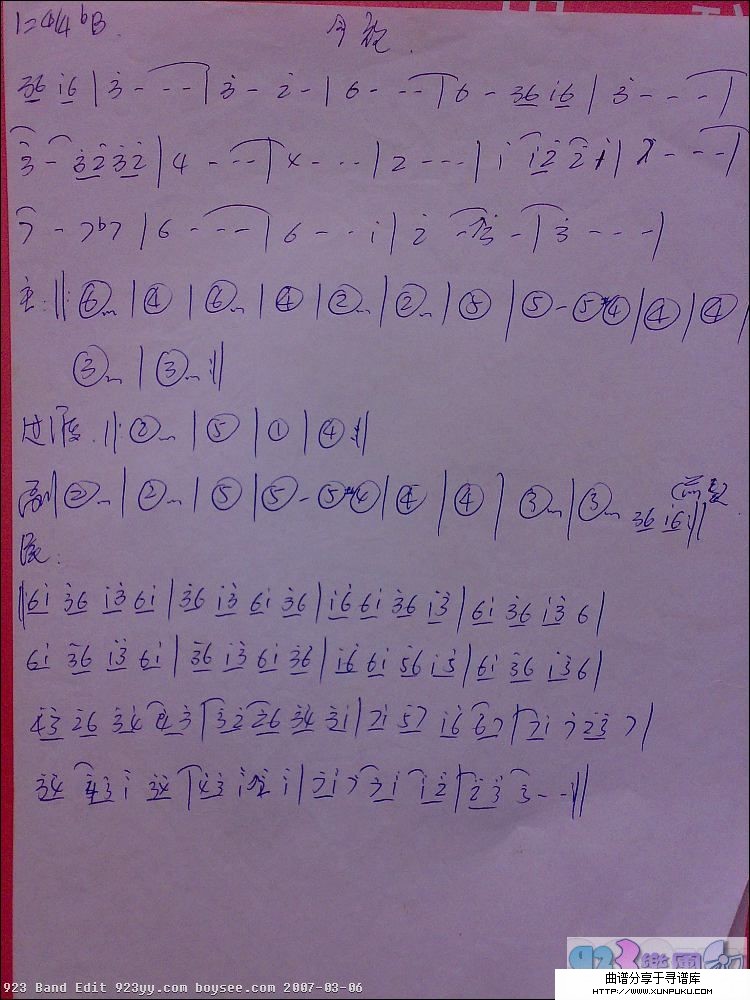 1=4/4 ♭B 今夜
36 i6 | 3 - - - | 3 - 2 - | 6 - - - | 6 - 36 i6 | 3 - - - |
3 - 3232 | 4 - - - | 4 - - - | 2 - - - | i i2 2i | 7 - - - |
7 - 7♭7 | 6 - - - | 6 - - i | 2 - 3 - | 3 - - - |
主: ‖: ⑥m | ④ | ⑥m | ④ | ②m | ②m | ⑤ | ⑤ - ⑤#④ | ④ | ④ |
③m | ③m :‖
过度. ‖: ②m | ⑤ | ① | ④ :‖
副‖ ②m | ②m | ⑤ | ⑤ - ⑤#④ | ④ | ④ | ③m | ③m 36 i6i ‖
尾:
‖6i 36 i3 6i | 36 i3 6i 36 | i6 6i 36 i3 | 6i 36 i3 6 |
6i 36 i3 6i | 36 i3 6i 36 | i6 6i 56 i5 | 6i 36 i36 |
43 26 34 43 | 32 26 34 3i | 7i 57 i6 67 | 7i 7 23 7 |
34 43 i 34 | 43 i2 i | 7i 7 7i i2 | 23 3 - - ‖
923 Band Edit 923yy.com boysee.com 2007-03-06
923樂團
曲谱分享于寻谱库
HTTP://WWW.XUNPUKU.COM